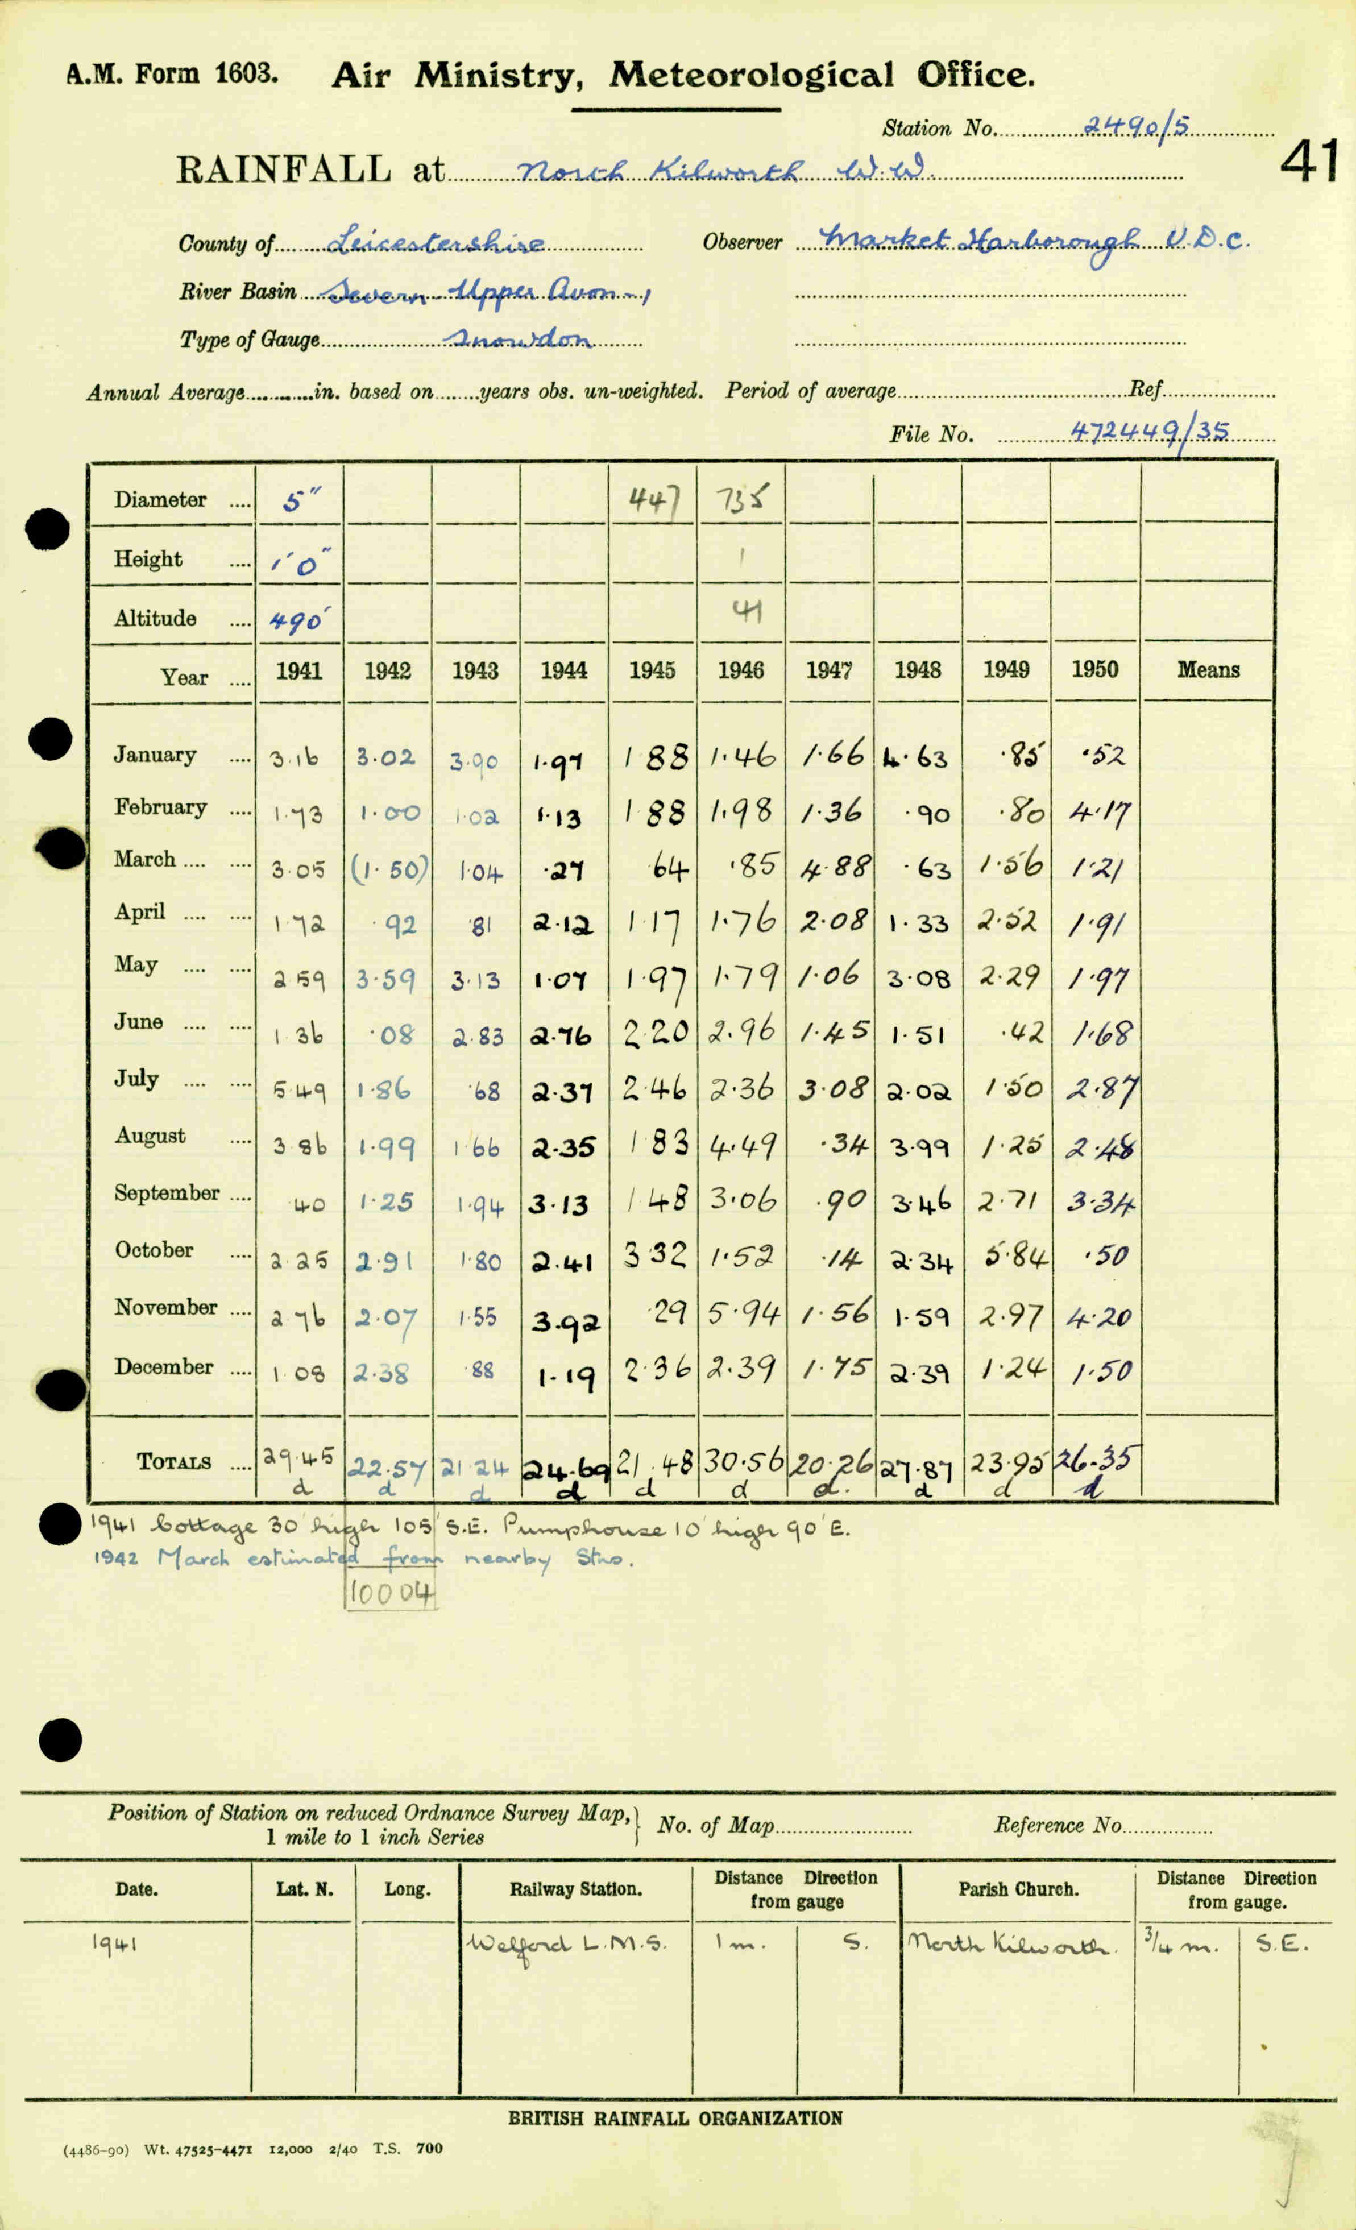 A.M. Form 1603. Air Ministry, Meteorological Office.
Station No. 2490/5
41
RAINFALL at North Kilworth W.W.
County of Leicestershire Observer Market Harborough U.D.C.
River Basin Severn Upper Avon-1
Type of Gauge Snowdon
Annual Average............in. based on........years obs. un-weighted. Period of average............Ref............
File No. 472449/35
Diameter .... 5" 447 735
Height .... 1'0" 1
Altitude .... 490' 41
Year .... 1941 1942 1943 1944 1945 1946 1947 1948 1949 1950 Means
January .... 3.16 3.02 3.90 1.97 1 88 1.46 1.66 4.63 .85 .52
February .... 1.73 1.00 1.02 1.13 1 88 1.98 1.36 .90 .80 4.17
March .... .... 3.05 (1.50) 1.04 .27 64 .85 4.88 .63 1.56 1.21
April .... .... 1 72 .92 .81 2.12 1 17 1.76 2.08 1.33 2.52 1.91
May .... .... 2 59 3.59 3.13 1.07 1.97 1.79 1.06 3.08 2.29 1.97
June .... .... 1 36 .08 2.83 2.76 2 20 2.96 1.45 1.51 .42 1.68
July .... .... 5 49 1.86 .68 2.37 2.46 2.36 3.08 2.02 1.50 2.87
August .... 3 86 1.99 1 66 2.35 1 83 4.49 .34 3.99 1.25 2.48
September .... 40 1.25 1.94 3.13 1 48 3.06 .90 3.46 2.71 3.34
October .... 2 25 2.91 1.80 2.41 3 32 1.52 .14 2.34 5.84 .50
November .... 2 76 2.07 1.55 3.92 .29 5.94 1.56 1.59 2.97 4.20
December .... 1 08 2.38 .88 1.19 2.36 2.39 1.75 2.39 1.24 1.50
TOTALS .... 29.45 22.57 21 24 24.69 21.48 30.56 20.26 27.87 23.95 26.35
d d d d d d d. d d d
1941 Cottage 30' high 105' S.E. Pumphouse 10' high 90' E.
1942 March estimated from nearby Stns.
10004
Position of Station on reduced Ordnance Survey Map, } No. of Map............ Reference No............
1 mile to 1 inch Series
Date. Lat. N. Long. Railway Station. Distance Direction from gauge Parish Church. Distance Direction from gauge.
1941 Welford L.M.S. 1 m. S. North Kilworth. 3/4 m. S.E.
BRITISH RAINFALL ORGANIZATION
(4486-90) Wt. 47525-4471 12,000 2/40 T.S. 700